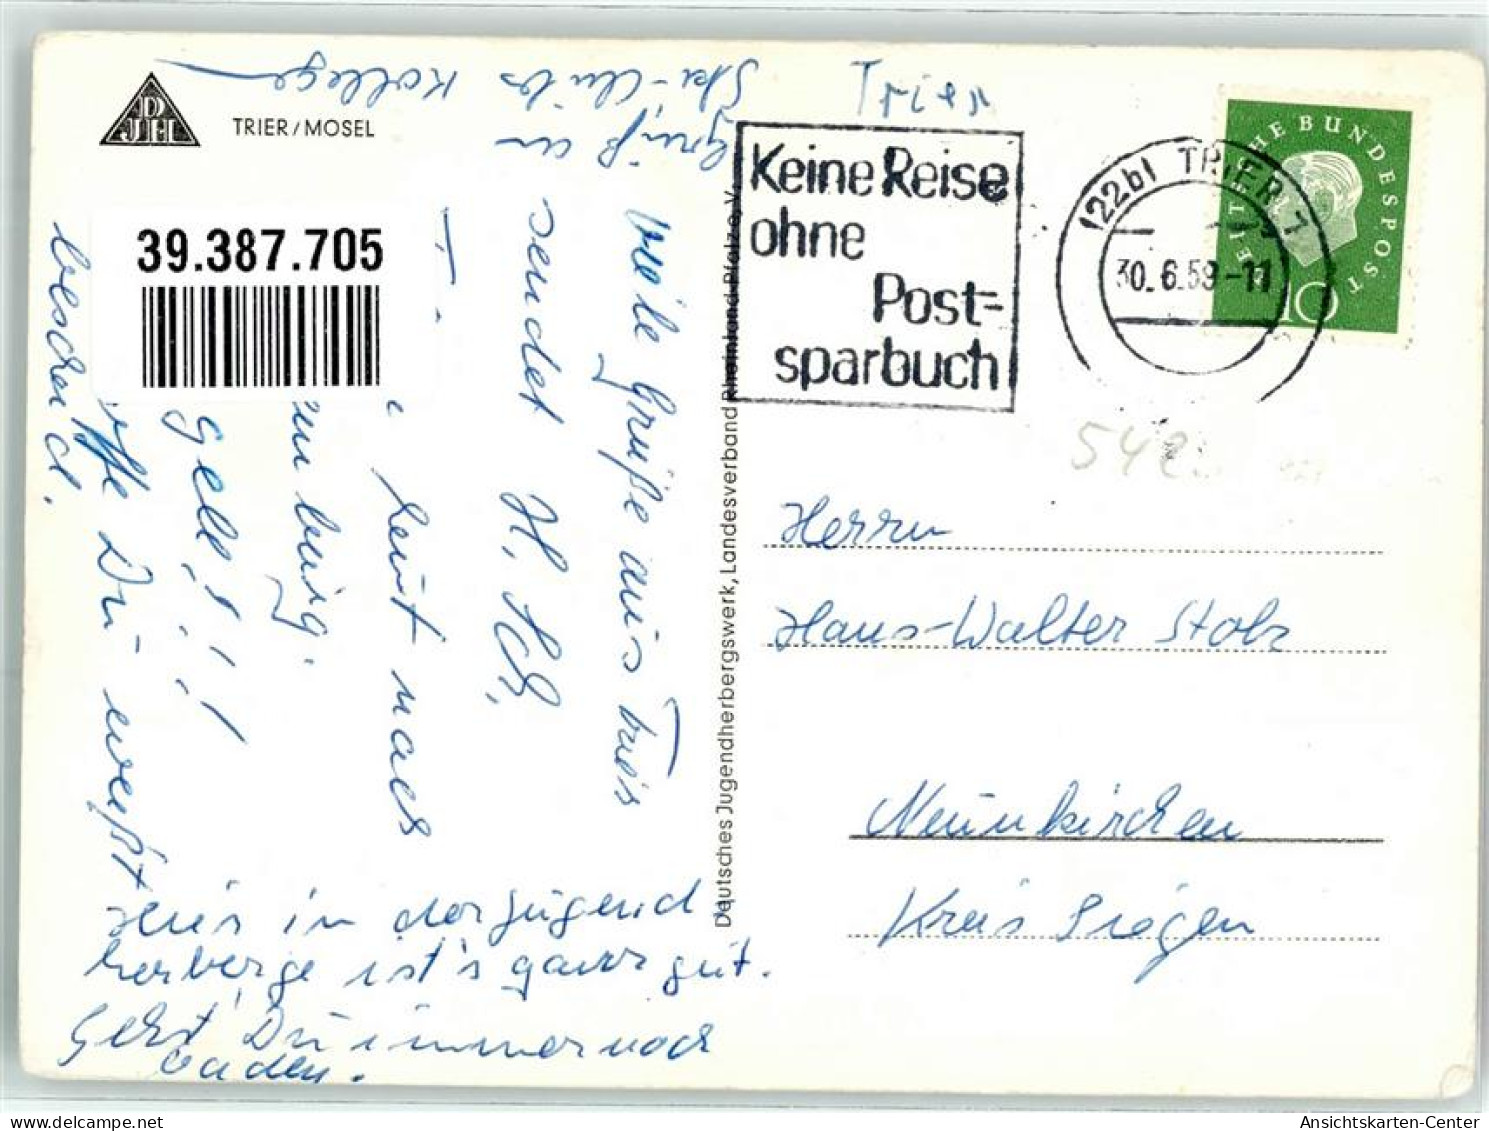 DJH
TRIER/MOSEL
39.387.705
Trier
Keine Reise
ohne
Post-
sparbuch
(22b) TRIER 1
30.6.59-11
DEUTSCHE BUNDESPOST
10
542
Deutsches Jugendherbergswerk, Landesverband Rheinland-Pfalz e.V.
Herrn
Hans-Walter Stolz
Neunkirchen
Kreis Siegen
Viele Grüße aus Trier
sendet H. Sch.
Gruß an
Ski-Clubs Kollege
Heut nach
burg.
gell!!!
Du weißt
bescheid.
Hier in der Jugend
herberge ist's ganz gut.
Gehst Du immer noch
baden.
oldthing
Ansichtskarten-Center